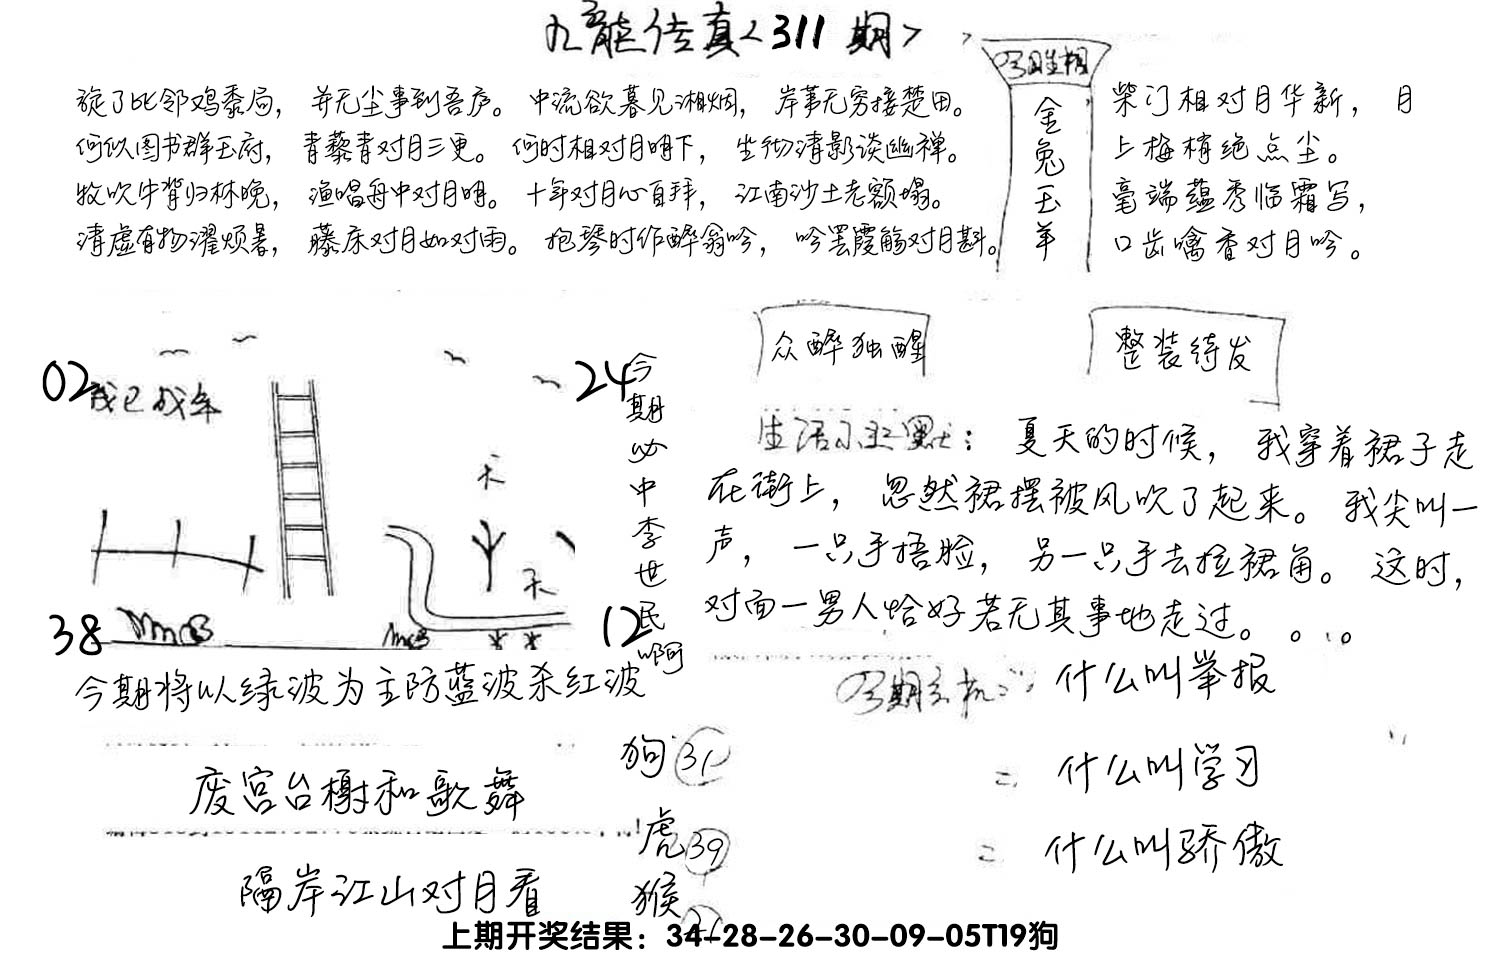 九龙传真<311期>
旋了比邻鸡黍局，并无尘事到吾庐。中流欲暮见湘烟，岸苇无穷接楚田。
何似图书群玉府，青藜青对月三更。何时相对月明下，坐彻清影谈幽禅。
牧吹牛背归林晚，渔唱舟中对月明。十年对月心自拜，江南沙土老额塌。
清虚有物濯烦暑，藤床对月如对雨。抱琴时作醉翁吟，吟罢霞觞对月斟。
今期生相
金兔玉羊
柴门相对月华新，月
上梅梢绝点尘。
毫端蕴秀临霜写，
口齿噙香对月吟。
众醉独醒
整装待发
02
我已成年
24
38
12
天
天
今期必中李世民啊
生活小幽默：夏天的时候，我穿着裙子走
在街上，忽然裙摆被风吹了起来。我尖叫一
声，一只手捂脸，另一只手去拉裙角。这时，
对面一男人恰好若无其事地走过。。。。
今期将以绿波为主防蓝波杀红波
今期玄机二：什么叫举报
= 什么叫学习
= 什么叫骄傲
废宫台榭和歌舞
隔岸江山对月看
狗31
虎39
猴
上期开奖结果：34-28-26-30-09-05T19狗